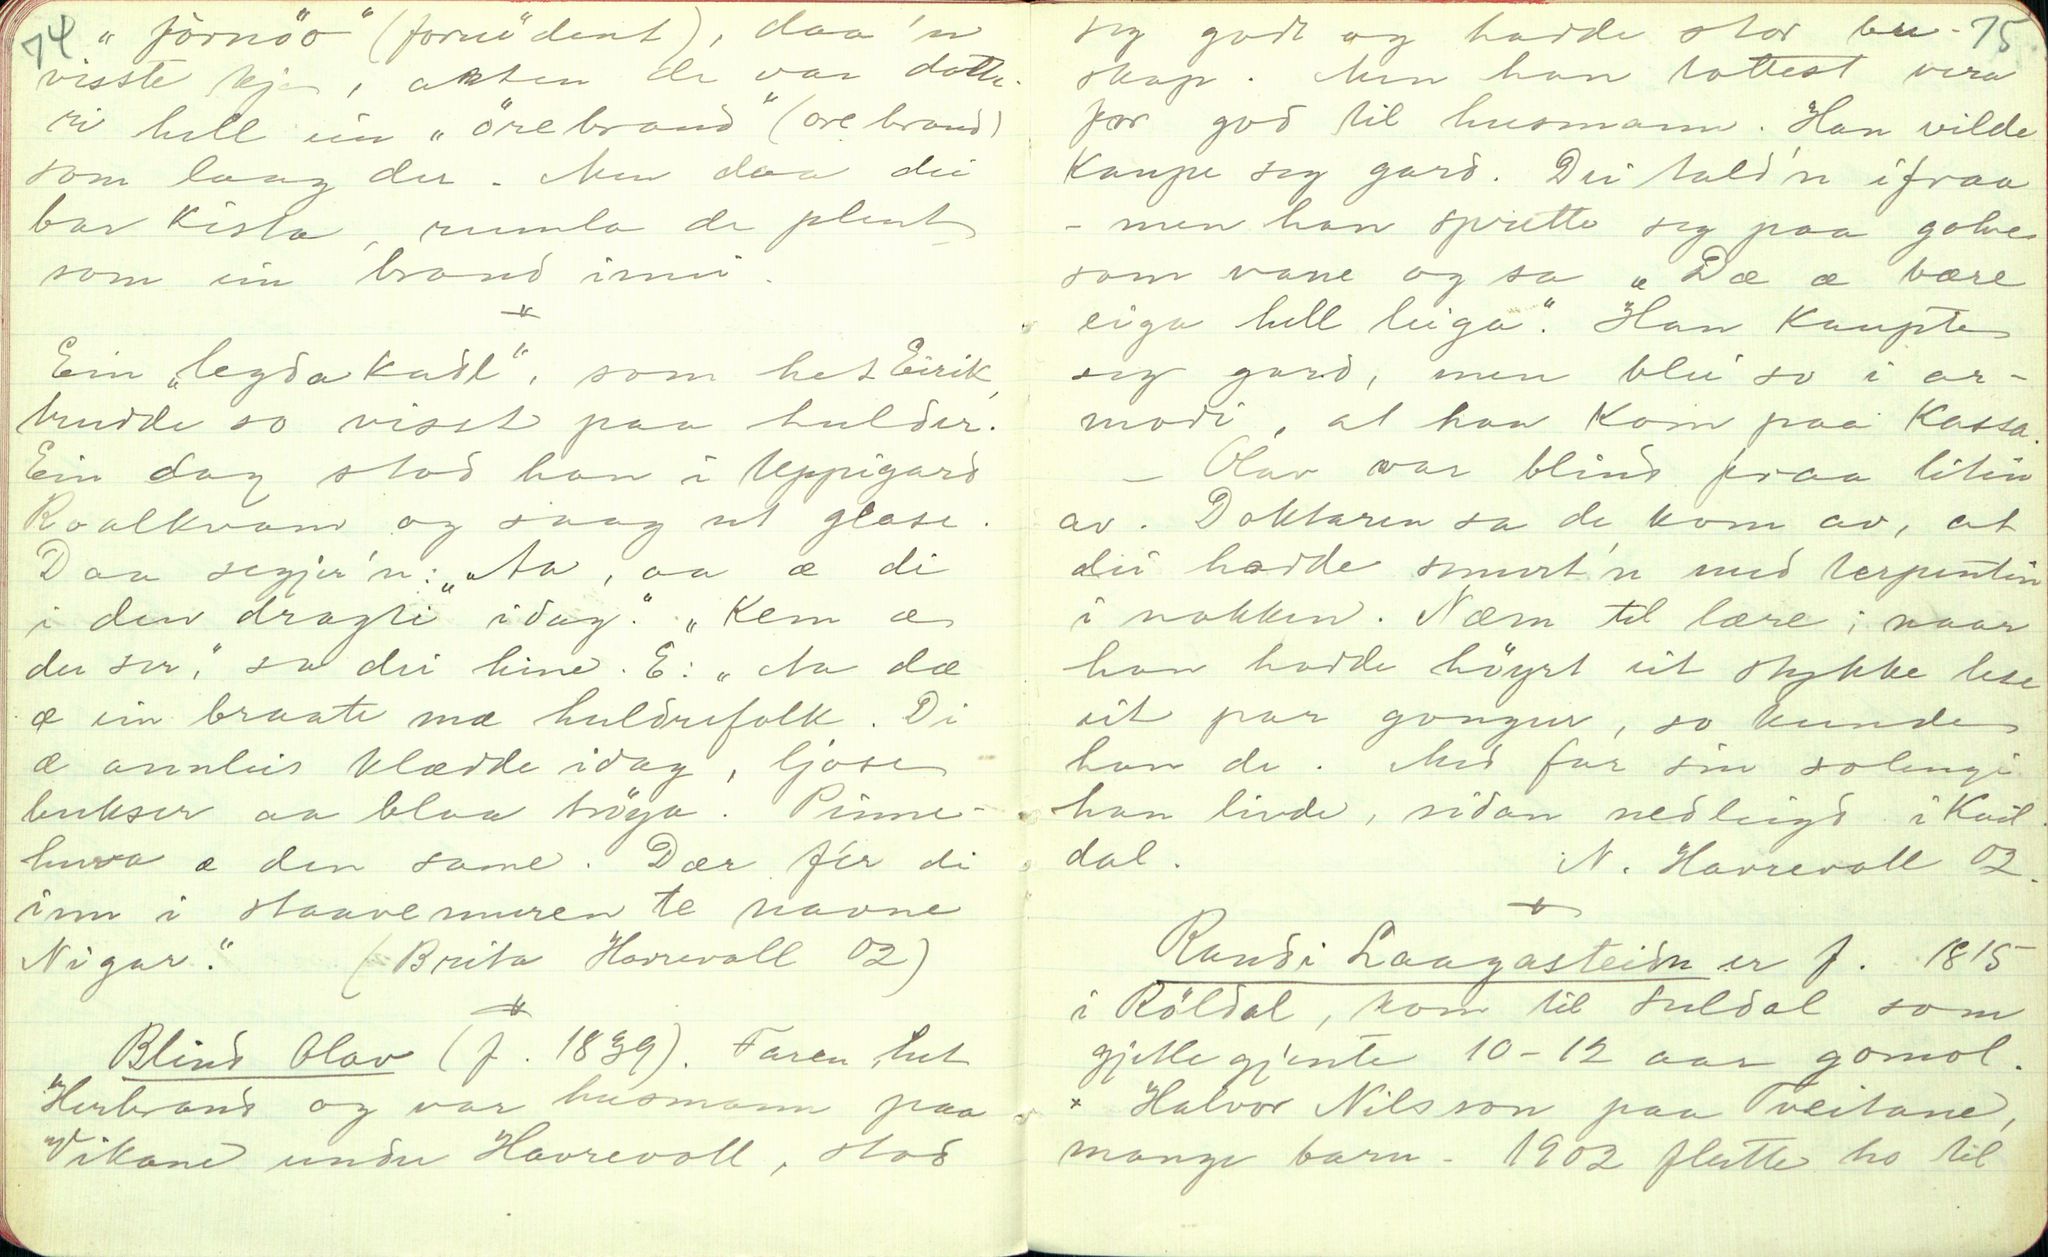 74
„förnöö“ (fornödent), daa'n
visste kje, anten de var dotte-
ri hell ein „örebrand“ (orebrand)
som laag der. Men daa dei
bar kista, rumla de plent
som ein brand inni.
Ein „legdakadl“, som het Eirik,
trudde so visst paa hulder.
Ein dag stod han i Uppigard
Roalkvam og saag ut glase.
Daa segjer'n: „Aa, aa æ di
i den dragti idag.“ „Kem æ
du ser,“ sa dei hine. E: „Aa dæ
æ ein braate mæ huldrefolk. Di
æ annleis klædde idag, ljose
bukser aa blaa tröya. Pinne-
huva æ den same. Dær fér di
inn i staavemuren te navne
Nigar.“ (Brita Havrevoll 02)
Blind Olav (f. 1839). Faren het
Herbrand og var husmann paa
Vikane under Havrevoll, stod
75
seg godt og hadde stor bu-
skap. Men han tottest vera
for god til husmann. Han vilde
kaupe seg gard. Dei tald'n ifraa
- men han sprette seg paa golve
som vane og sa „Dæ æ bære
eiga hell leiga“. Han kaupte
seg gard, men blei so i ar-
modi, at han kom paa kassa.
- Olav var blind fraa liten
av. Doktaren sa de kom av, at
dei hadde smurt'n med terpentin
i nakken. Næm til lære; naar
han hadde höyrt eit stykke lese
eit par gonger, so kunde
han de. Med far sin solengi
han livde, sidan nedleigd i Kvil-
dal. N. Havrevoll 02.
Randi Laagasteidn er f. 1815
i Röldal, kom til Suldal som
gjetlegjente 10-12 aar gomol.
× Halvor Nilsson paa Tveitane,
mange barn - 1902 flutte ho til